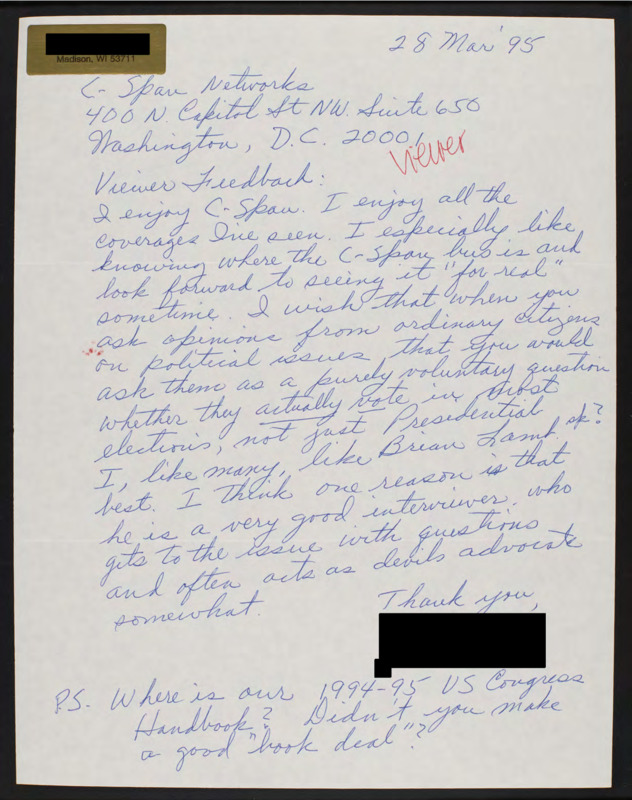 Madison, WI 53711
28 Mar '95
C-Span Networks
400 N. Capitol St NW. Suite 650
Washington, D.C. 20001
viewer
Viewer Feedback:
I enjoy C-Span. I enjoy all the
coverages I've seen. I especially like
knowing where the C-Span bus is and
look forward to seeing it "for real"
sometime. I wish that when you
ask opinions from ordinary citizens
on political issues, that you would
ask them as a purely voluntary question
whether they actually vote in most
elections, not just Presedential
sp?
I, like many, like Brian Lamb
best. I think one reason is that
he is a very good interviewer, who
gits to the issue with questions
and often acts as devils advocate
somewhat.
Thank you,
P.S. Where is our 1994-95 US Congress
Handbook? Didn't you make
a good "book deal"?